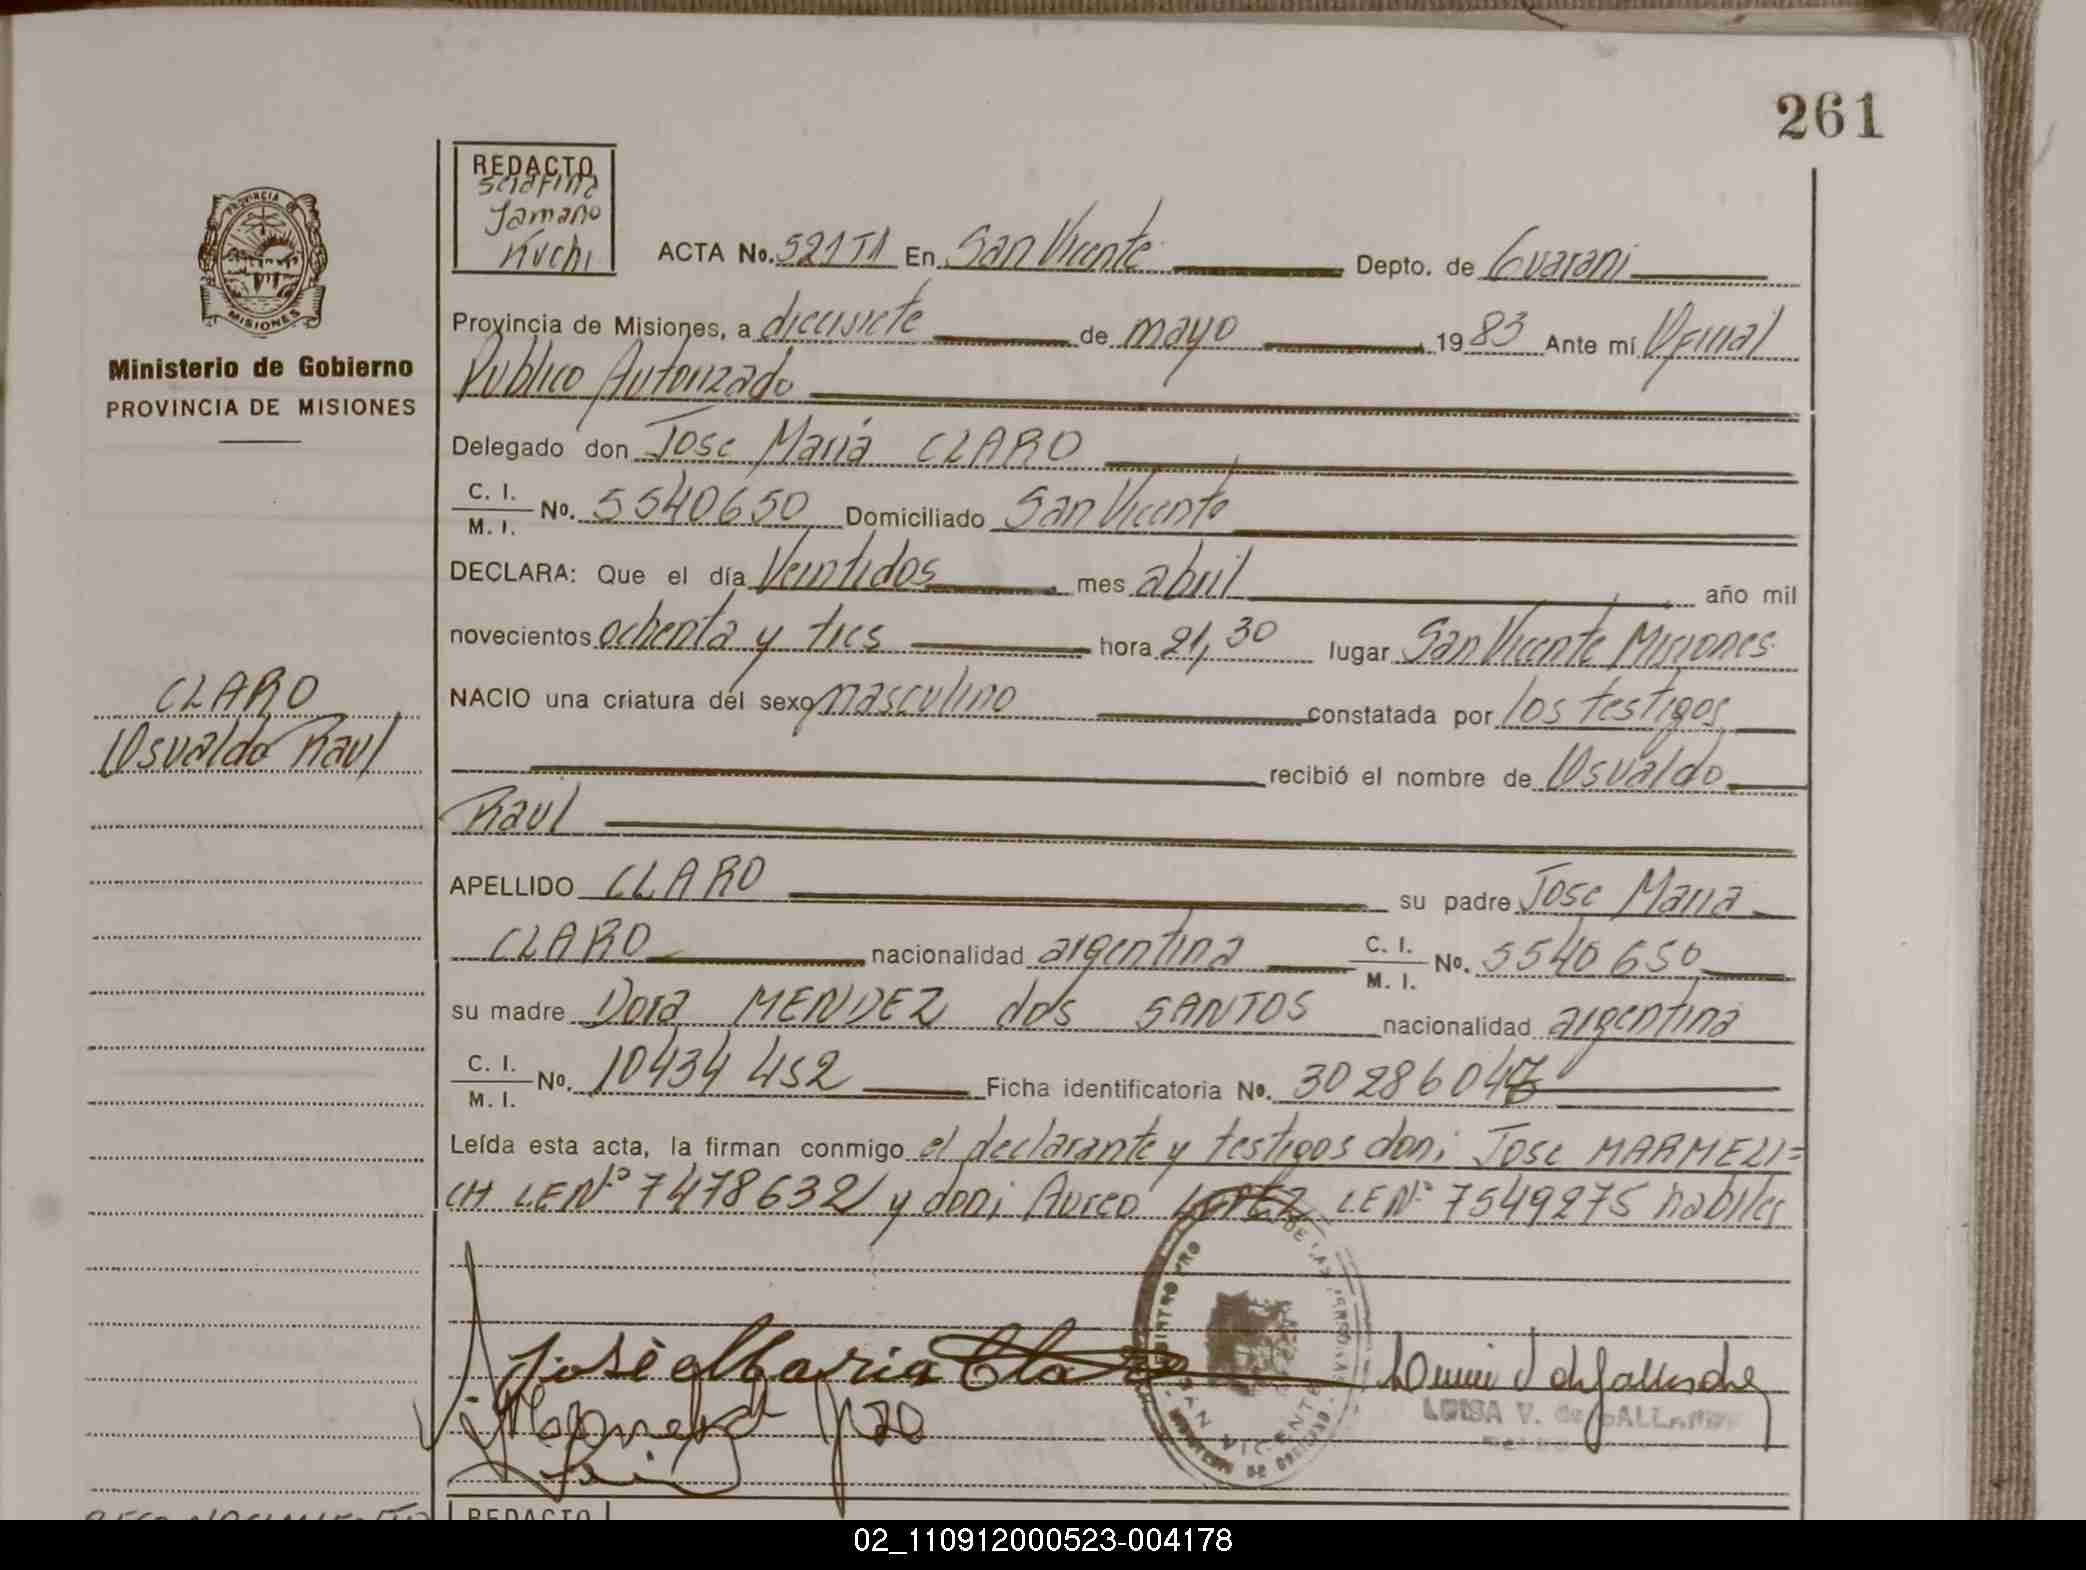 261
REDACTO
Serafina
Tamaño
Kuchi
ACTA No. 521 T1 En San Vicente Depto. de Guarani
Provincia de Misiones, a diecisiete de mayo 1983 Ante mí Oficial
Publico Autorizado
Delegado don Jose María CLARO
C. I.
M. I. No. 5540650 Domiciliado San Vicente
DECLARA: Que el día Veintidos mes abril año mil
novecientos ochenta y tres hora 21,30 lugar San Vicente Misiones
NACIO una criatura del sexo masculino constatada por los testigos
recibió el nombre de Osvaldo
Raul
APELLIDO CLARO su padre Jose Maria
CLARO nacionalidad argentina C. I.
M. I. No. 5540650
su madre Dora MENDEZ dos SANTOS nacionalidad argentina
C. I.
M. I. No. 10434452 Ficha identificatoria No. 30286047
Leída esta acta, la firman conmigo el declarante y testigos don; Jose MARMELI=
CH LE Nº 7478632 y don; Aureo LOPEZ LE Nº 7549275 habiles
José Maria Claro
LUISA V. de GALLARDO
SAN VICENTE
PROVINCIA DE
MISIONES
Ministerio de Gobierno
PROVINCIA DE MISIONES
CLARO
Osvaldo Raul
RECONOCIMIENTO
REDACTO
02_110912000523-004178